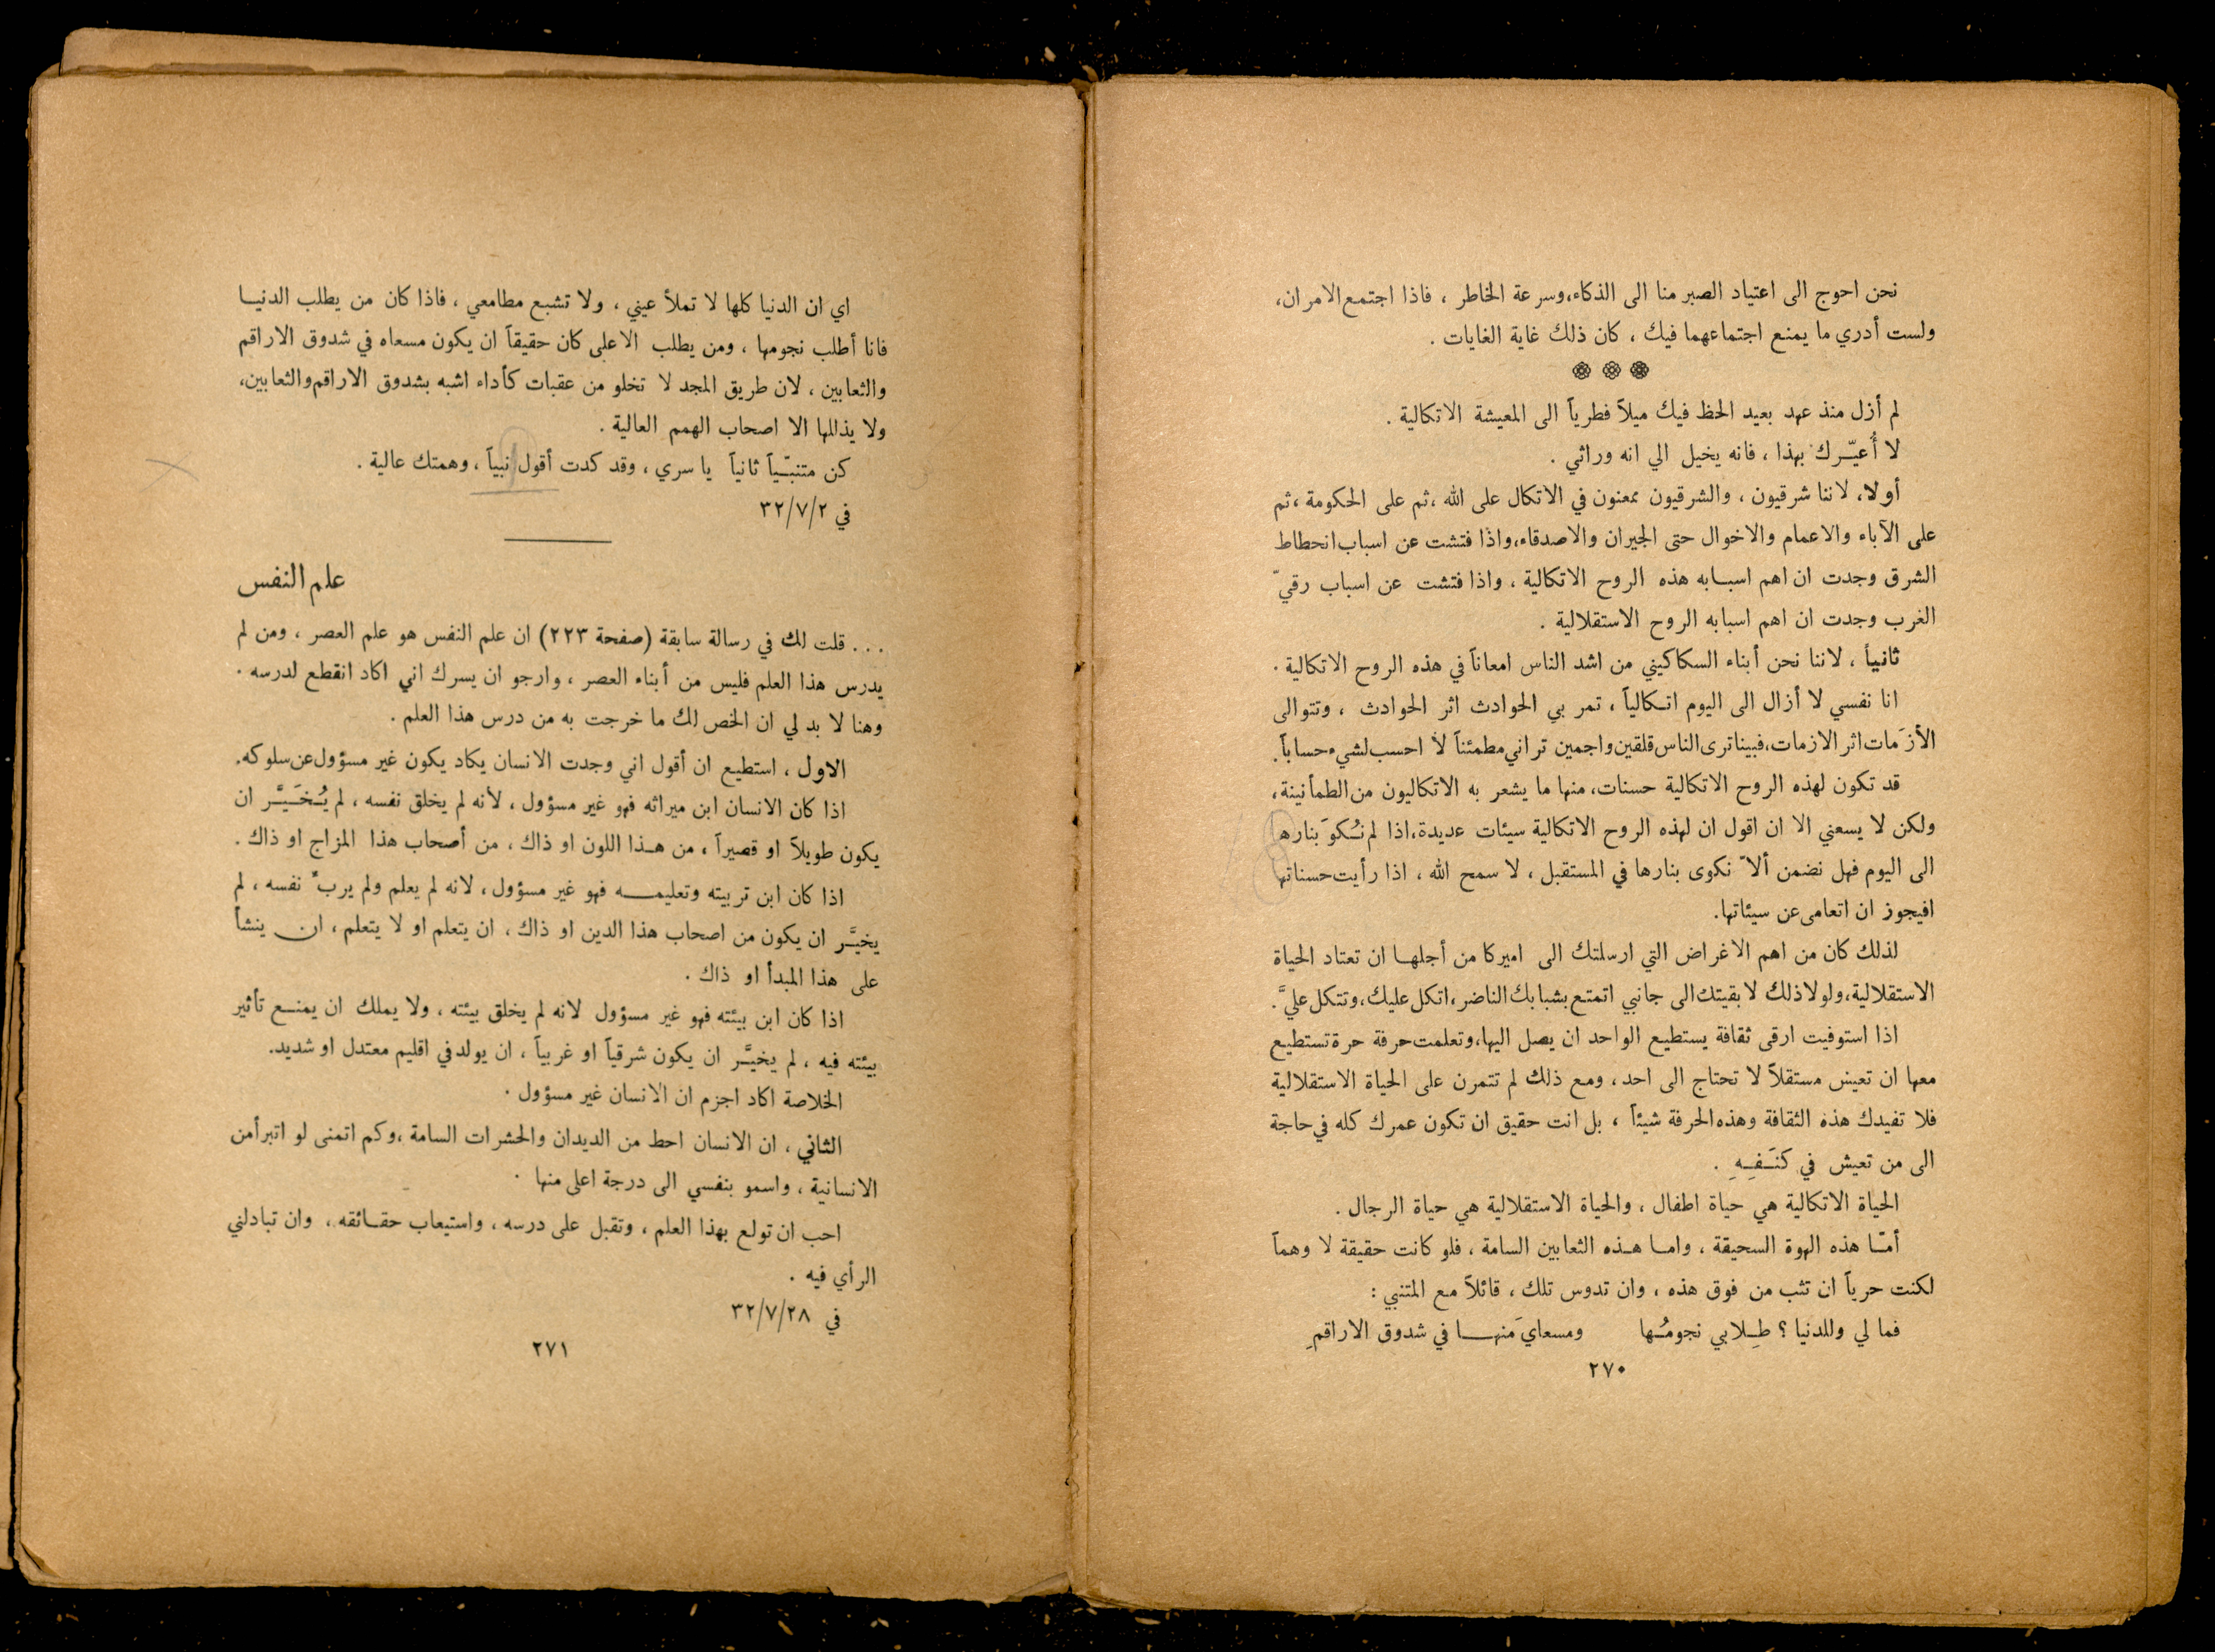 نحن احوج الى اعتياد الصبر منا الى الذكاء، وسرعة الخاطر ، فاذا اجتمع الامران،
ولست أدري ما يمنع اجتماعهما فيك ، كان ذلك غاية الغايات .
لم أزل منذ عهد بعيد الحظ فيك ميلاً فطرياً الى المعيشة الاتكالية .
لا أُعيّرك بهذا ، فانه يخيل الي انه وراثي .
أولا، لاننا شرقيون ، والشرقيون ممعنون في الاتكال على الله ، ثم على الحكومة ، ثم
على الآباء والاعمام والاخوال حتى الجيران والاصدقاء، واذا فتشت عن اسباب انحطاط
الشرق وجدت ان اهم اسبابه هذه الروح الاتكالية ، واذا فتشت عن اسباب رقيّ
الغرب وجدت ان اهم اسبابه الروح الاستقلالية .
ثانياً ، لاننا نحن أبناء السكاكيني من اشد الناس امعاناً في هذه الروح الاتكالية .
انا نفسي لا أزال الى اليوم اتكالياً ، تمر بي الحوادث اثر الحوادث ، وتتوالى
الأزَمات اثر الازمات، فبينا ترى الناس قلقين واجمين تراني مطمئناً لا احسب لشيء حساباً.
قد تكون لهذه الروح الاتكالية حسنات، منها ما يشعر به الاتكاليون من الطمأنينة،
ولكن لا يسعني الا ان اقول ان لهذه الروح الاتكالية سيئات عديدة، اذا لم نُكوَ بنارها
الى اليوم فهل نضمن ألاّ نكوى بنارها في المستقبل ، لا سمح الله ، اذا رأيت حسناتها
افيجوز ان اتعامى عن سيئاتها.
لذلك كان من اهم الاغراض التي ارسلتك الى اميركا من أجلها ان تعتاد الحياة
الاستقلالية، ولولا ذلك لابقيتك الى جانبي اتمتع بشبابك الناضر، اتكل عليك، وتتكل عليَّ.
اذا استوفيت ارقى ثقافة يستطيع الواحد ان يصل اليها، وتعلمت حرفة حرة تستطيع
معها ان تعيش مستقلاً لا تحتاج الى احد، ومع ذلك لم تتمرن على الحياة الاستقلالية
فلا تفيدك هذه الثقافة وهذه الحرفة شيئاً ، بل انت حقيق ان تكون عمرك كله في حاجة
الى من تعيش في كنَفِهِ .
الحياة الاتكالية هي حياة اطفال ، والحياة الاستقلالية هي حياة الرجال .
أمّا هذه الهوة السحيقة ، واما هذه الثعابين السامة ، فلو كانت حقيقة لا وهماً
لكنت حرياً ان تثب من فوق هذه ، وان تدوس تلك ، قائلاً مع المتنبي :
فما لي وللدنيا ؟ طِلابي نجومُها ومسعايَ منها في شدوق الاراقمِ
٢٧٠
اي ان الدنيا كلها لا تملأ عيني ، ولا تشبع مطامعي ، فاذا كان من يطلب الدنيا
فانا أطلب نجومها ، ومن يطلب الاعلى كان حقيقاً ان يكون مسعاه في شدوق الاراقم
والثعابين ، لان طريق المجد لا تخلو من عقبات كأداء اشبه بشدوق الاراقم والثعابين،
ولا يذللها الا اصحاب الهمم العالية .
كن متنبّياً ثانياً يا سري ، وقد كدت أقول نبياً ، وهمتك عالية .
في ٣٢/٧/٢
علم النفس
. . . قلت لك في رسالة سابقة (صفحة ٢٢٣) ان علم النفس هو علم العصر ، ومن لم
يدرس هذا العلم فليس من أبناء العصر ، وارجو ان يسرك اني اكاد انقطع لدرسه .
وهنا لا بد لي ان الخص لك ما خرجت به من درس هذا العلم .
الاول ، استطيع ان أقول اني وجدت الانسان يكاد يكون غير مسؤول عن سلوكه.
اذا كان الانسان ابن ميراثه فهو غير مسؤول ، لأنه لم يخلق نفسه ، لم يُخَيَّر ان
يكون طويلاً او قصيراً ، من هذا اللون او ذاك ، من أصحاب هذا المزاج او ذاك .
اذا كان ابن تربيته وتعليمه فهو غير مسؤول ، لانه لم يعلم ولم يربّ نفسه ، لم
يخيَّر ان يكون من اصحاب هذا الدين او ذاك ، ان يتعلم او لا يتعلم ، ان ينشأ
على هذا المبدأ او ذاك .
اذا كان ابن بيئته فهو غير مسؤول لانه لم يخلق بيئته ، ولا يملك ان يمنع تأثير
بيئته فيه ، لم يخيَّر ان يكون شرقياً او غربياً ، ان يولد في اقليم معتدل او شديد.
الخلاصة اكاد اجزم ان الانسان غير مسؤول .
الثاني ، ان الانسان احط من الديدان والحشرات السامة ، وكم اتمنى لو اتبرأ من
الانسانية ، واسمو بنفسي الى درجة اعلى منها .
احب ان تولع بهذا العلم ، وتقبل على درسه ، واستيعاب حقائقه ، وان تبادلني
الرأي فيه .
في ٣٢/٧/٢٨
٢٧١